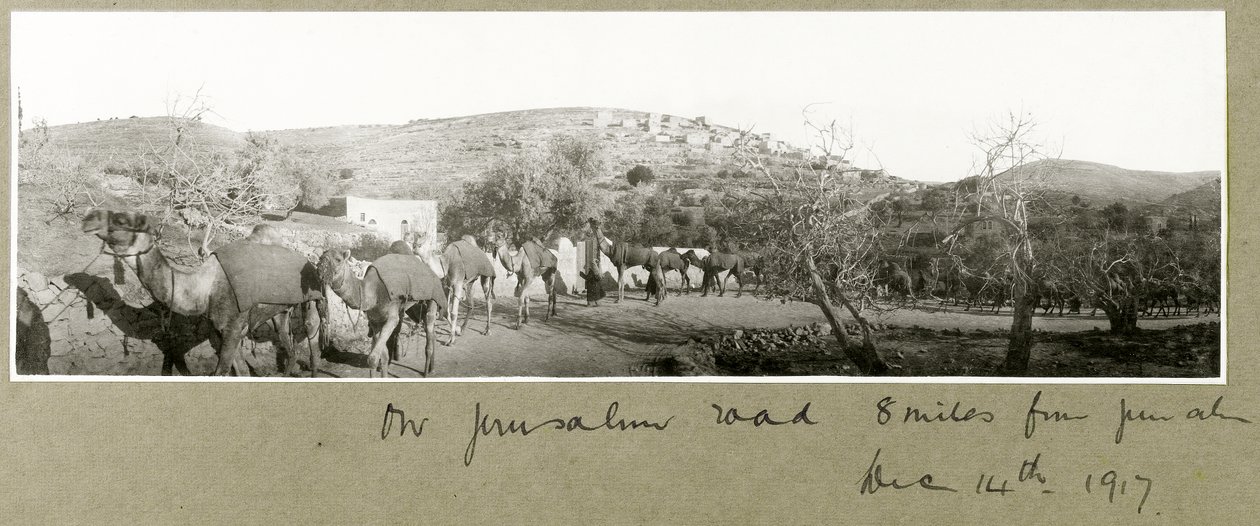 On Jerusalem road 8 miles from Jerusalem
Dec 14th 1917.